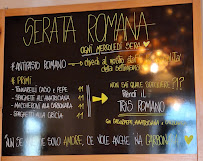 SERATA ROMANA
OGNI MERCOLEDÌ SERA
* ANTIPASTO ROMANO → chiedi al nostro staff
della settimana
* PRIMI
- TONNARELLI CACIO e PEPE 11
- SPAGHETTI ALL'AMATRICIANA 11
- MACCHERONI ALLA CARBONARA 11
- SPAGHETTI ALLA GRICIA 11
NON SAI QUALE SCEGLIERE?!?
Prendi il
TRIS ROMANO
"NUN SE VIVE SOLO AMORE, CE VOLE ANCHE NA CARBONARA"